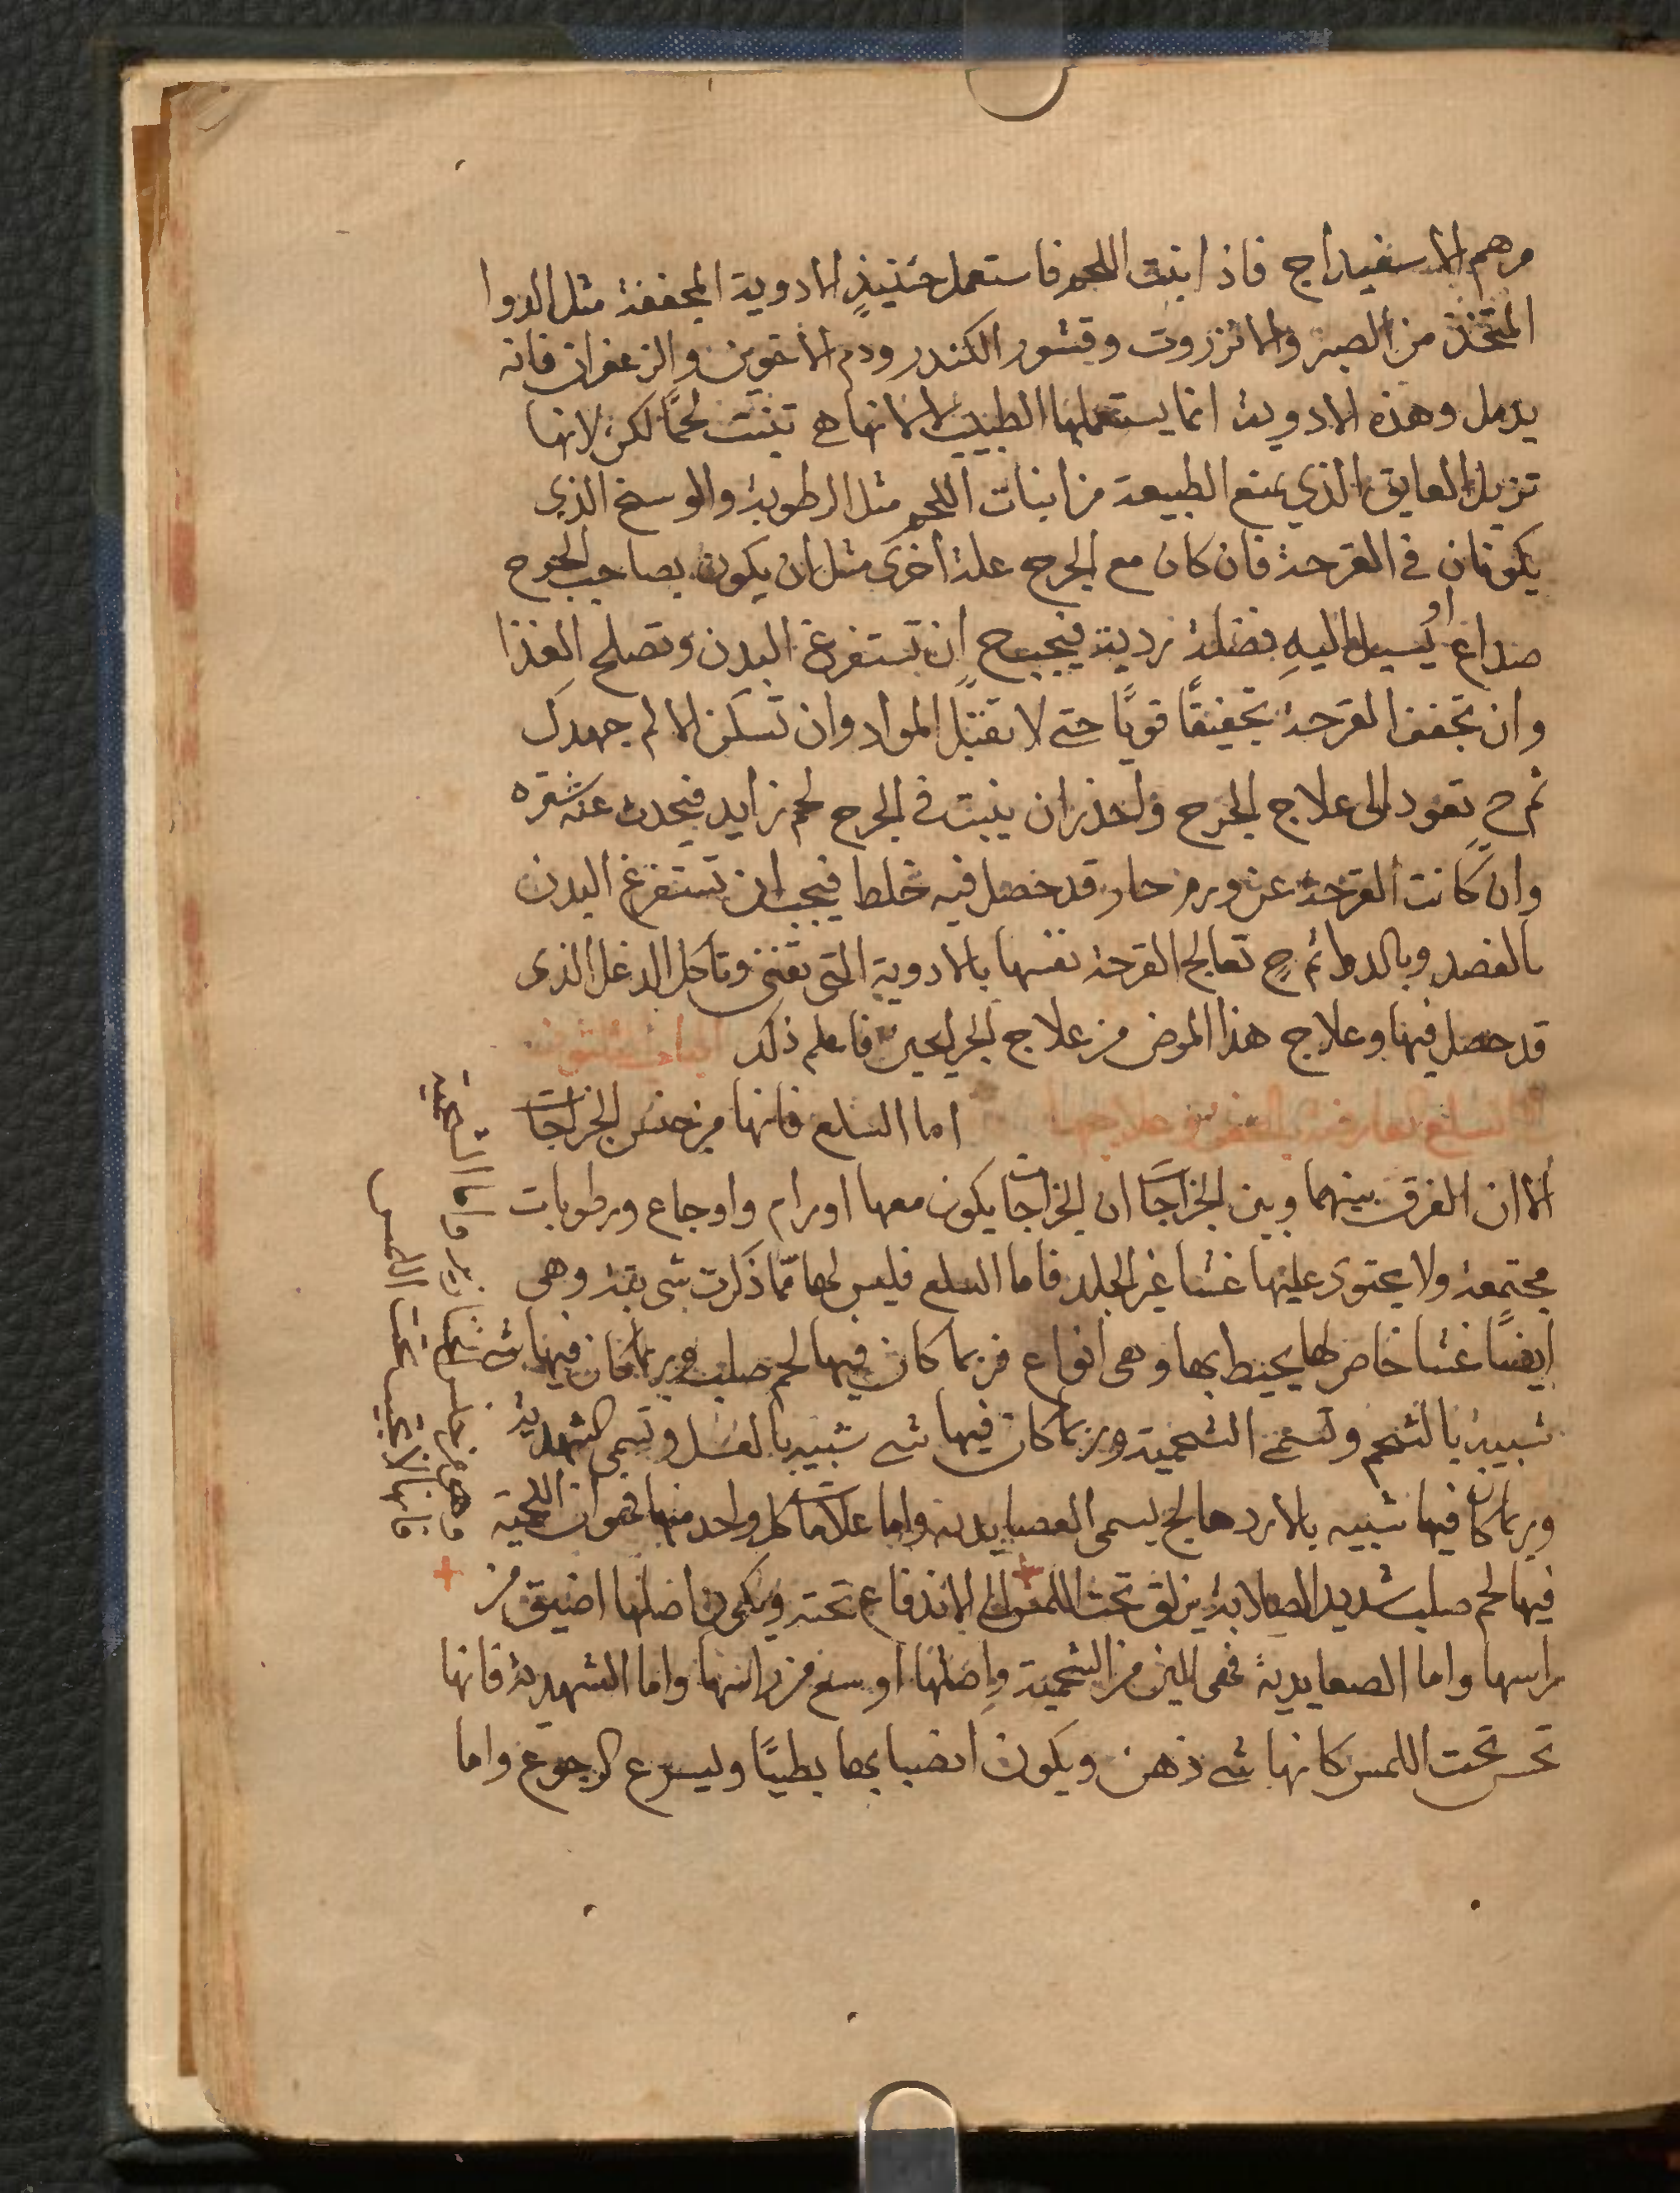 مرهم الاسفيداج فاذا نبت اللحم فاستعمل حينيذٍ الادوية المجففة مثل الدوا
المتخذ من الصبر والانزروت وقشور الكندر ودم الاخوين والزعفران فانه
يدمل وهذه الادوية انما يستعملها الطبيب لا لانها هي تنبت لحمًا لكن لانها
تزيل العايق الذي يمنع الطبيعة من انبات اللحم مثل الرطوبة والوسخ الذي
يكونان في القرحة فان كان مع الجرح علة اخرى مثل ان يكون بصاحب الجرح
صداع او يسيل اليهِ فضلة ردية فيجب ح ان تستفرغ البدن وتصلح الغذا
وان تجفف القرحة تجفيفًا قويًا حتى لا تقبل المواد وان تسكن الالم جهدك
ثم ح تعود الى علاج الجرح واحذر ان ينبت في الجرح لحم زايد فيحدث عنه شتره
وان كانت القرحة عن ورم حار قد حصل فيه خلط فيجب ان تستفرغ البدن
بالفصد وبالدوا ثم ح تعالج القرحة نفسها بالادوية التي تفني وتاكل الدغل الذي
قد حصل فيها وعلاج هذا المرض من علاج الجرايحين فاعلم ذلك
السلع العارضة علاجها اما السلع فانها من جنس الخراجات
الا ان الفرق بينهما وبين الخراجات ان الخراجات يكون معها اورام واوجاع ورطوبات
مجتمعة ولا يحتوى عليها غشا غير الجلد فاما السلع فليس لها ممّا ذكرت شى بتة وهى
ايضًا غشا خاص لها يحيط بها وهى انواع فربما كان فيها لحم صلب وربما كان فيها شى
شبيه بالشحم وتسمى الشحمية وربما كان فيها شى شبيه بالعسل وتسمى الشهدية
وربما كان فيها شبيه بالاردهالج يسمى العصايدية واما علامات كل واحد منها فهو ان اللحمية
فيها لحم صلب شديد الصلابة يزلق تحت اللمس الى الاندفاع تحته ويكون اصلها اضيق من
راسها واما الصعايدية فهى الين من الشحمية واصلها اوسع من راسها واما الشهدية فانها
تحس تحت اللمس كانها شى ذهن ويكون انصبابها بطيًا ويسرع الرجوع واما